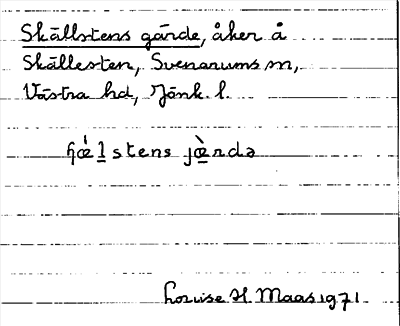 Skällstens gärde, åker å
Skällesten, Svenarums sn,
Västra hd, Jönk. l.
ɧæ̀l̠stens jæ̠̀rdə
Louise H. Maas 1971